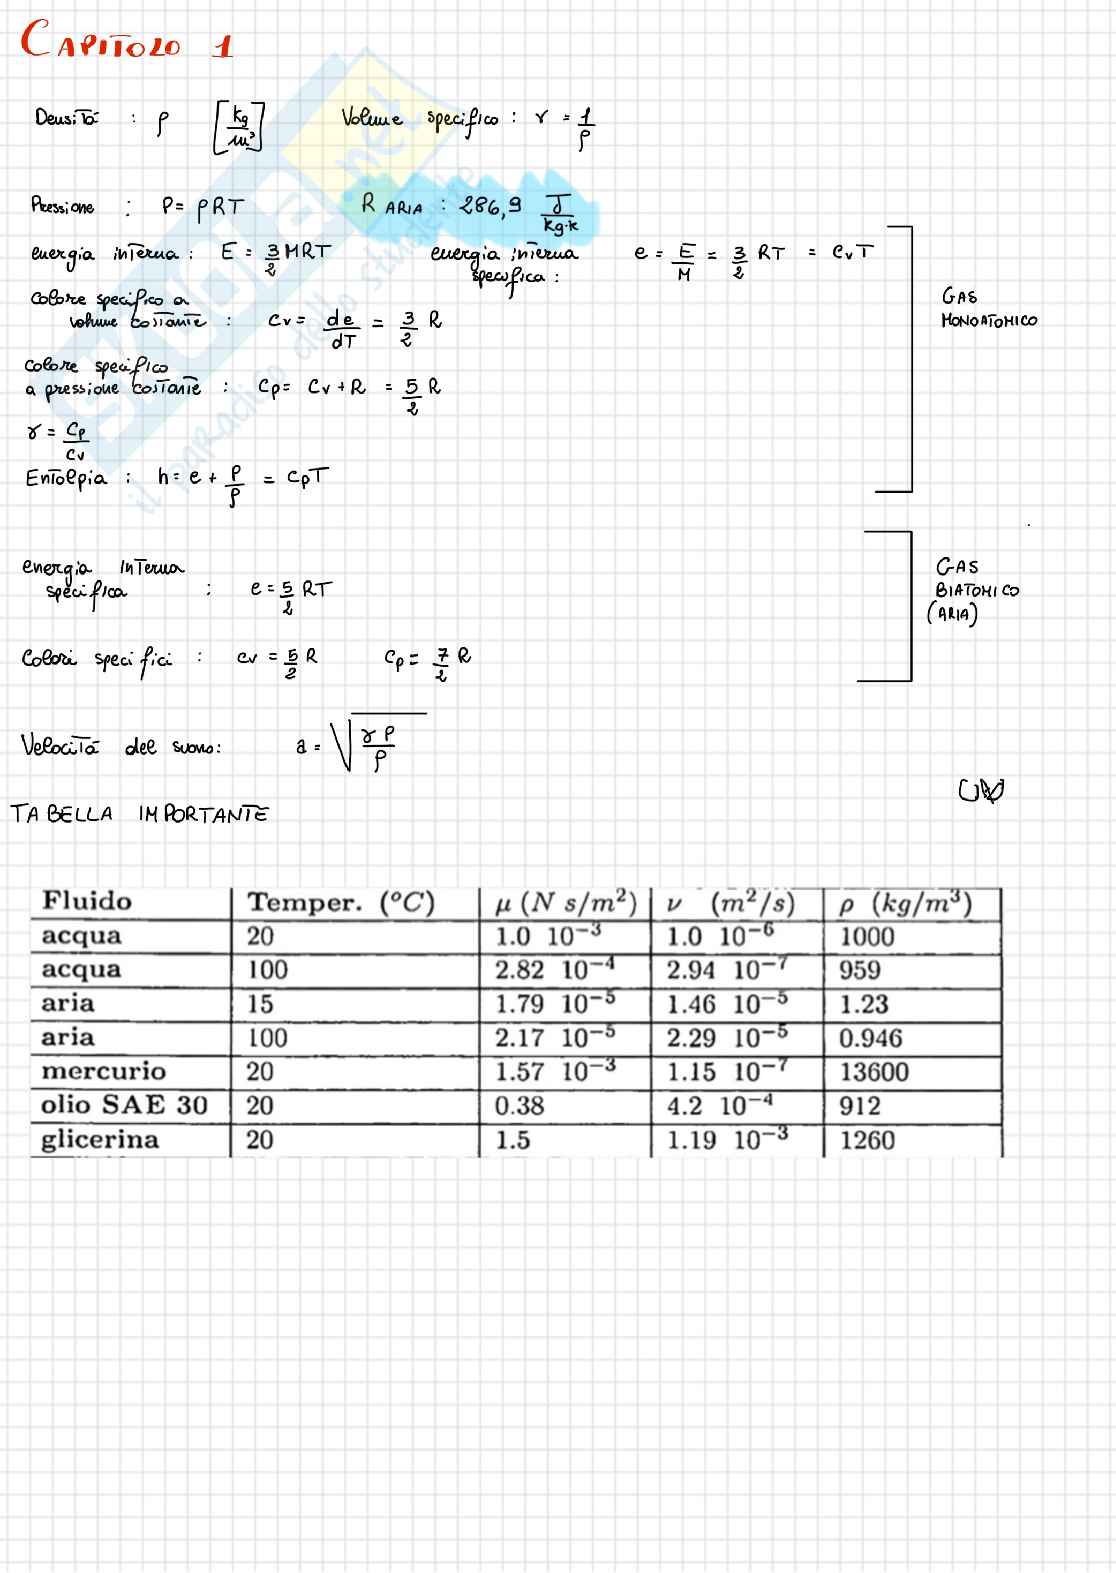 CAPITOLO 1
Densità : ρ [kg/m³] Volume specifico : v = 1/ρ
Pressione : P = ρRT R ARIA : 286,9 J/kg·K
energia interna : E = 3/2 MRT energia interna specifica : e = E/M = 3/2 RT = CvT
GAS
MONOATOMICO
calore specifico a
volume costante : Cv = de/dT = 3/2 R
calore specifico
a pressione costante : Cp = Cv + R = 5/2 R
γ = Cp/Cv
Entalpia : h = e + P/ρ = CpT
energia interna
specifica : e = 5/2 RT
GAS
BIATOMICO
(ARIA)
Calori specifici : cv = 5/2 R Cp = 7/2 R
Velocità del suono : a = √(γP/ρ)
TABELLA IMPORTANTE
Fluido Temper. (°C) μ (N s/m²) ν (m²/s) ρ (kg/m³)
acqua 20 1.0 10⁻³ 1.0 10⁻⁶ 1000
acqua 100 2.82 10⁻⁴ 2.94 10⁻⁷ 959
aria 15 1.79 10⁻⁵ 1.46 10⁻⁵ 1.23
aria 100 2.17 10⁻⁵ 2.29 10⁻⁵ 0.946
mercurio 20 1.57 10⁻³ 1.15 10⁻⁷ 13600
olio SAE 30 20 0.38 4.2 10⁻⁴ 912
glicerina 20 1.5 1.19 10⁻³ 1260
SKUOLA.net
il paradiso dello studente